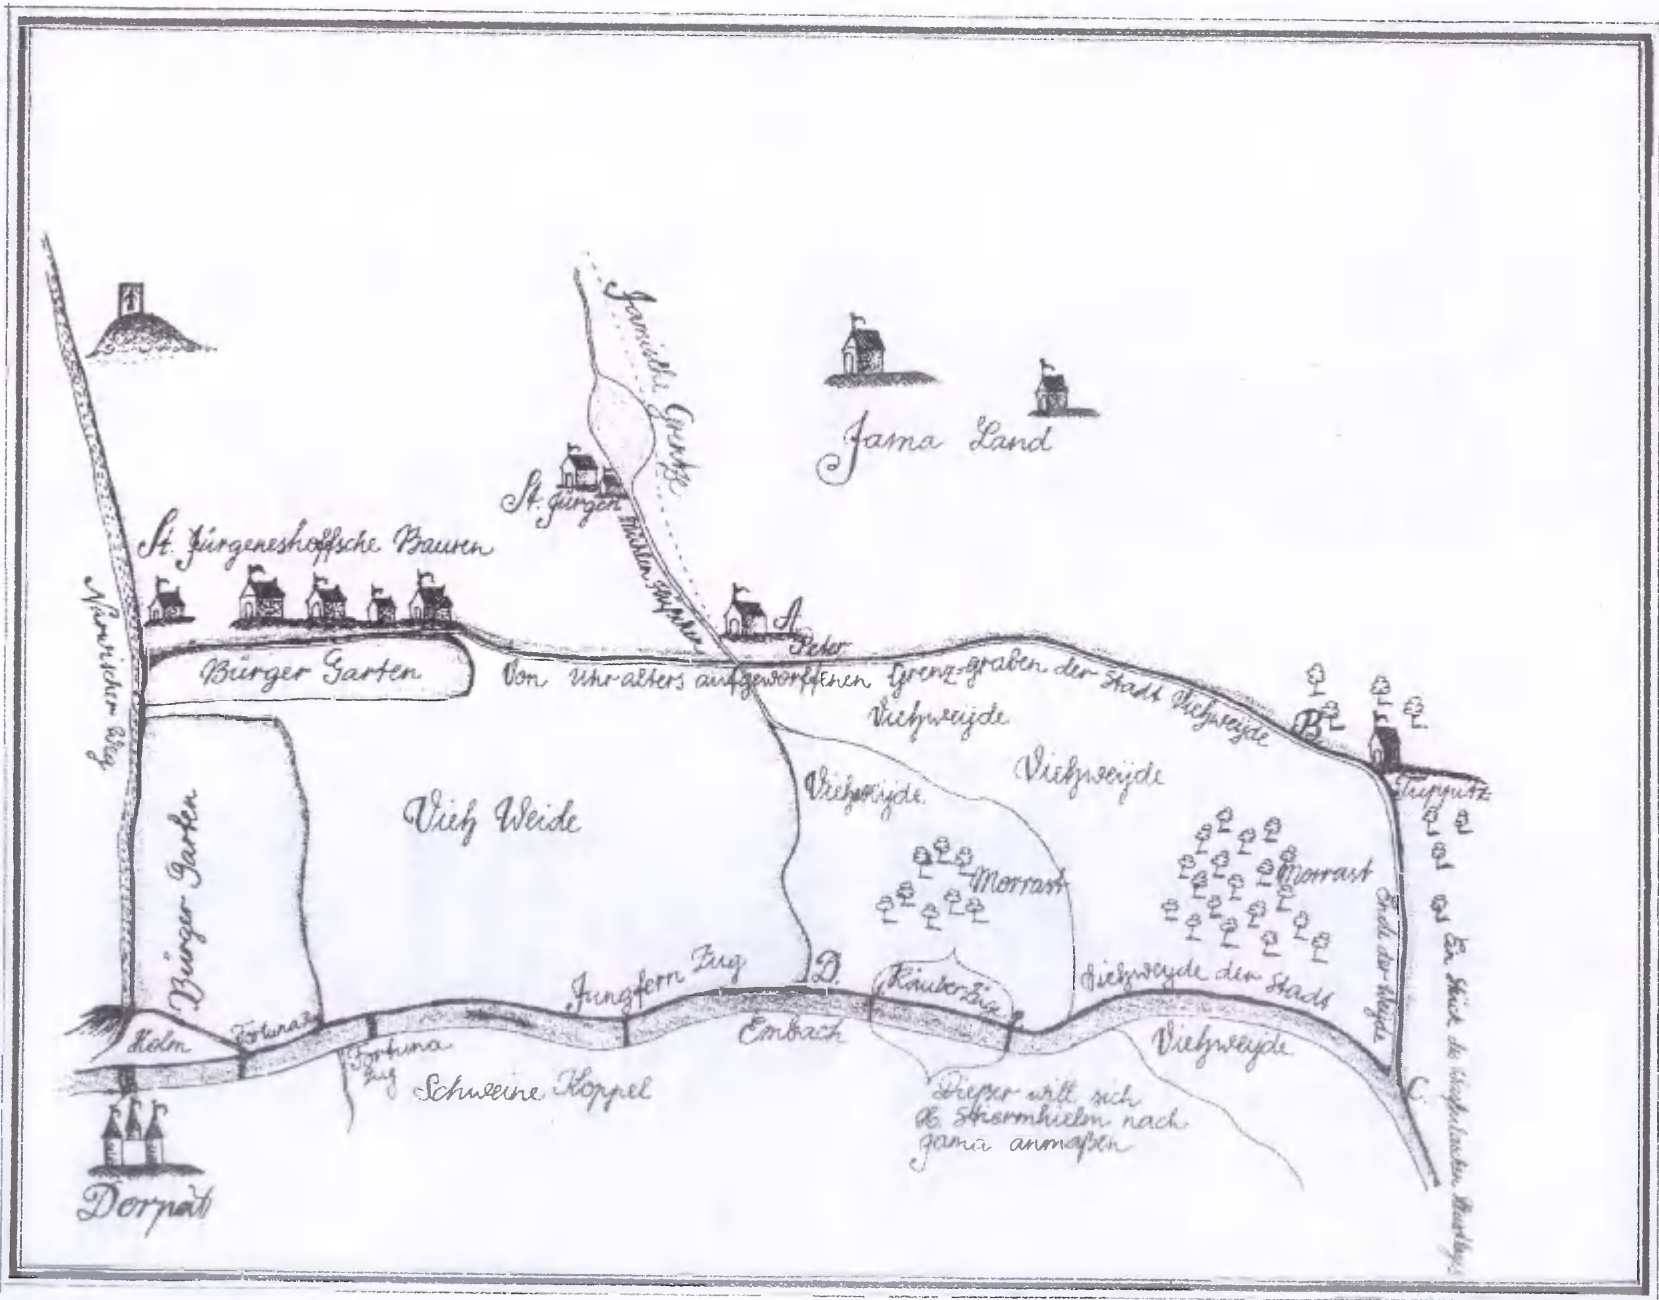 Jamische Grentze
Jama Land
St. Jürgen
St. Jürgeneshoffsche Bauren
Narwischer Weg
Mühlen
A
Peter
Bürger Garten
Von Uhr alters aufgeworffenen Grenz-graben der Stadt Viehweijde
Viehweijde
B.
Viehweijde
Viehweijde
Tuppitz
Bürger Garten
Vieh Weide
Morrast
Morrast
Ende der Weyde
Ein Stück de
Jungfern Zug
D.
Räuber Zug
Viehweyde der Stadt
Holm
Fortuna
Fortuna
Zug
Embach
Viehweyde
C.
Schweine Koppel
Dieser will sich
H. Stiernhielm nach
Jama anmaßen
Dorpat